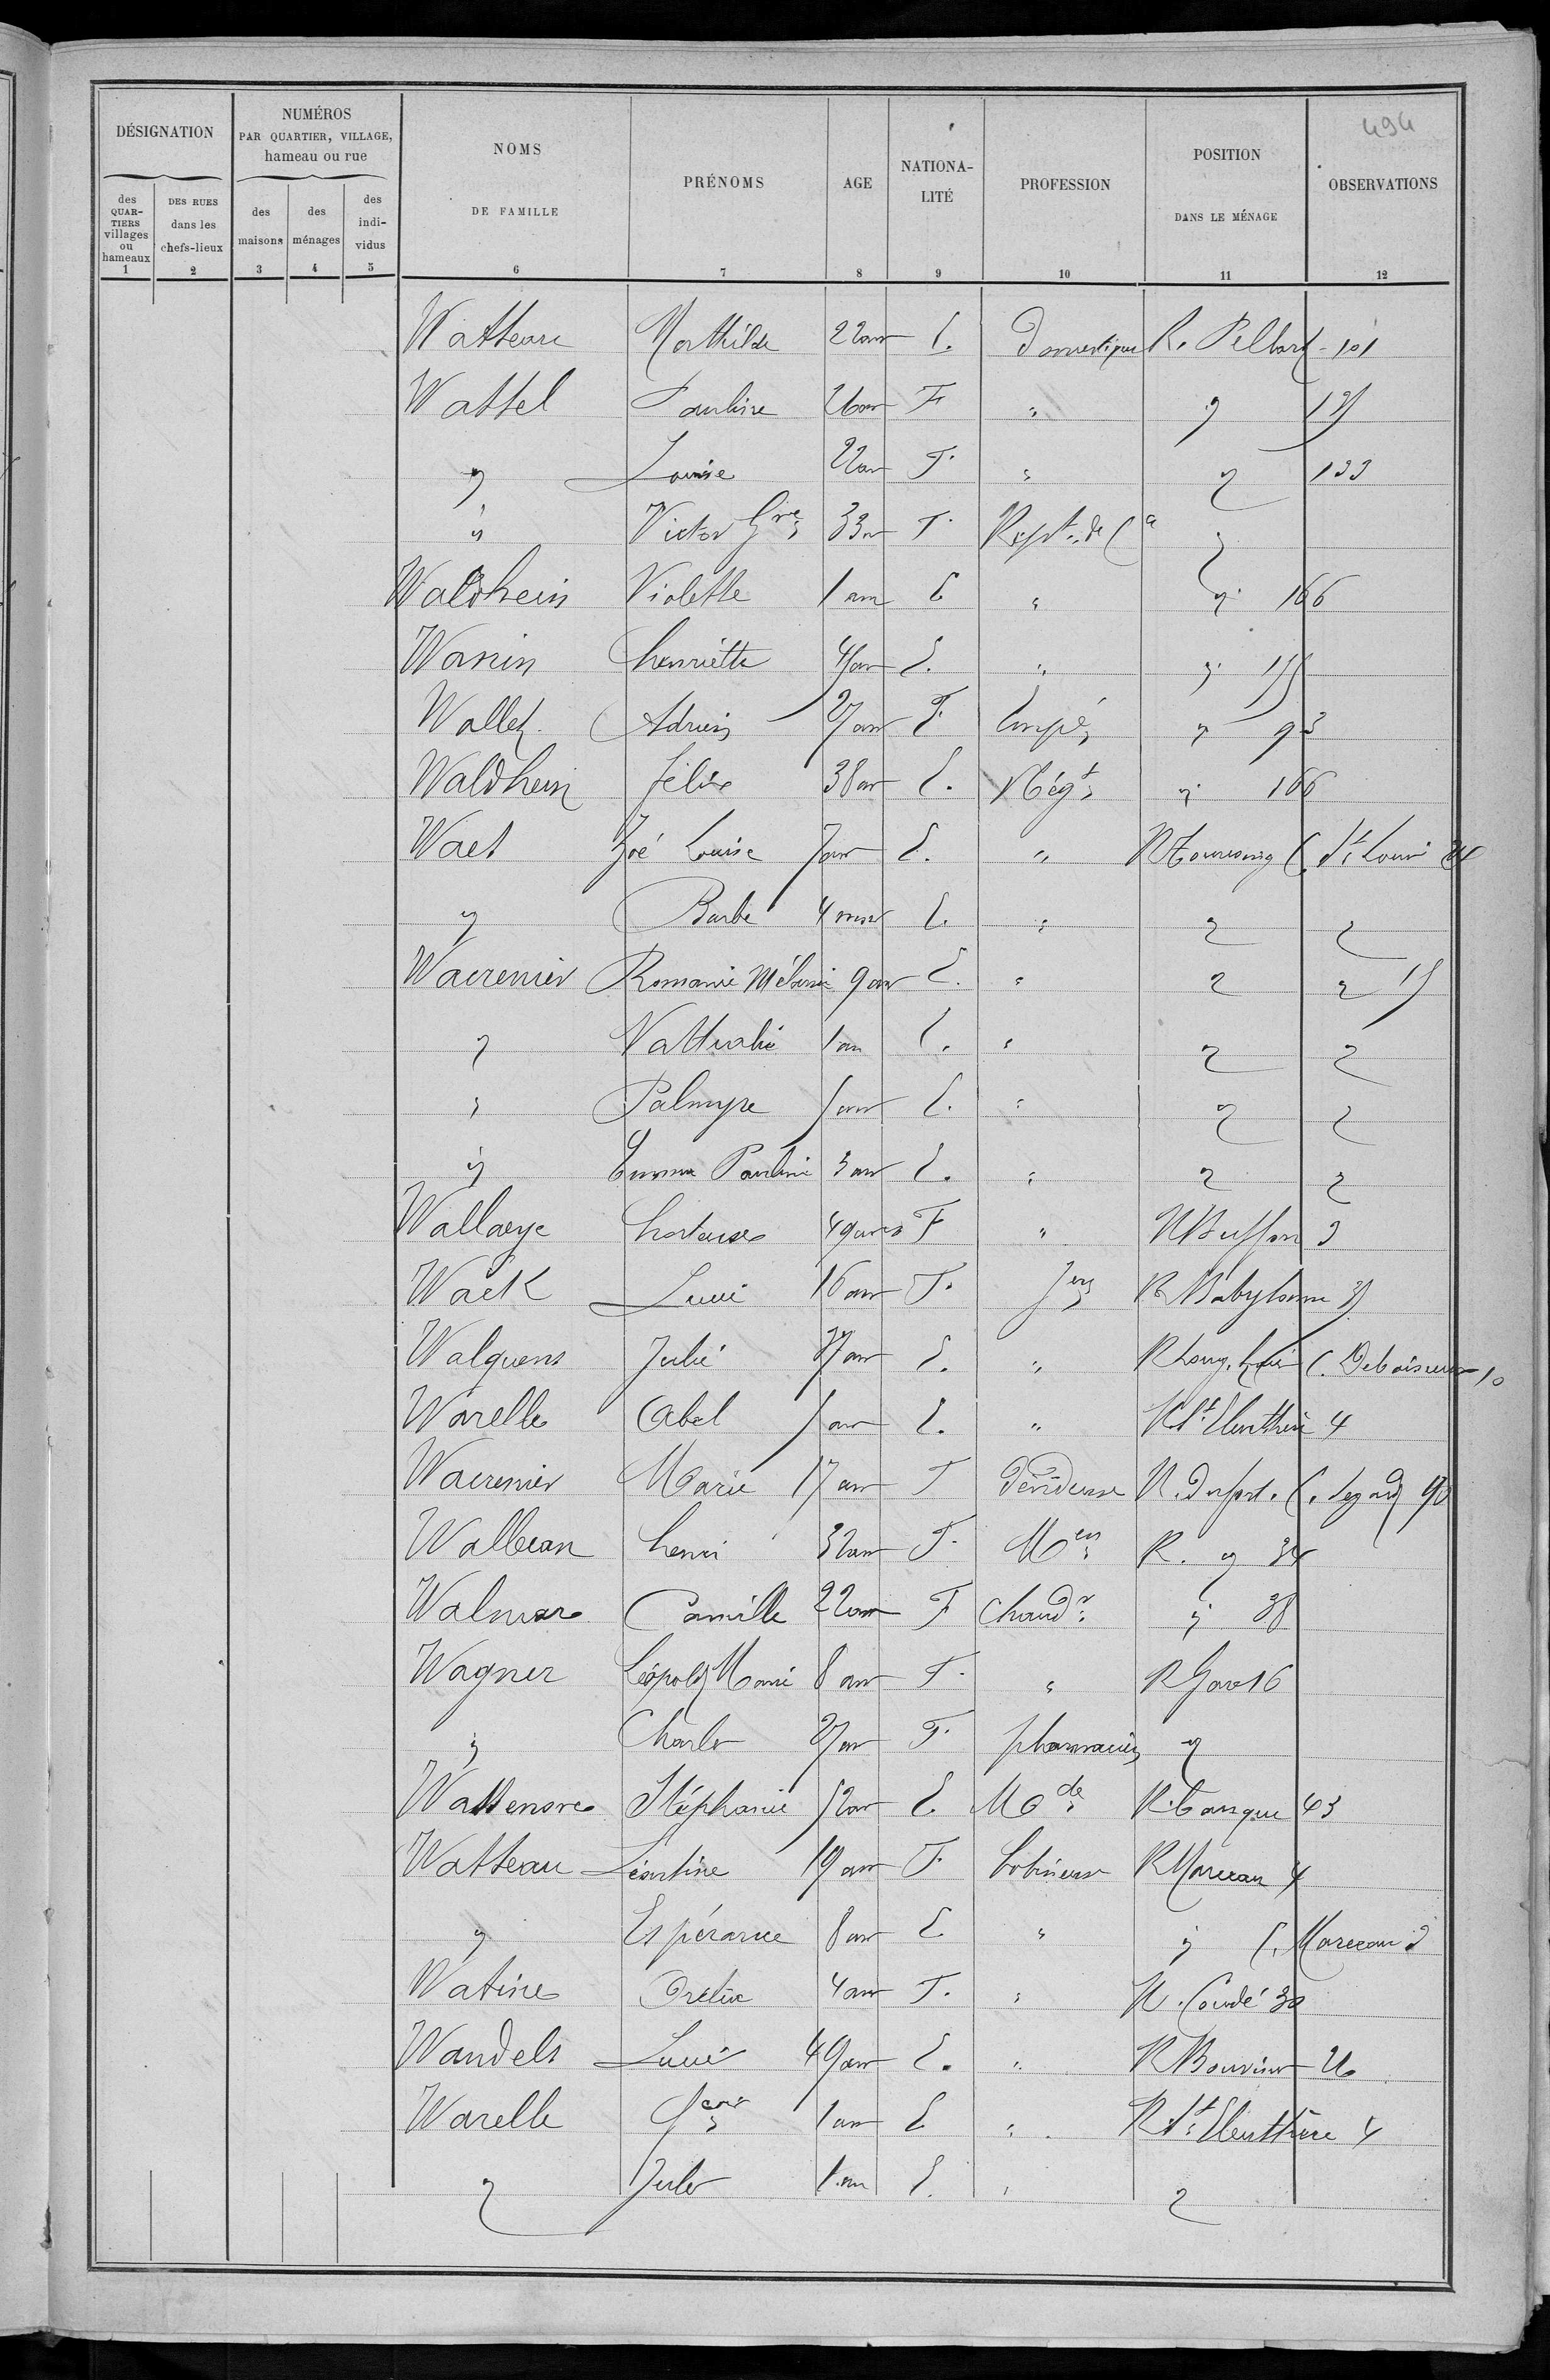 494
DÉSIGNATION
NUMÉROS PAR QUARTIER, VILLAGE, hameau ou rue
NOMS DE FAMILLE
PRÉNOMS
AGE
NATIONA-LITÉ
PROFESSION
POSITION DANS LE MÉNAGE
OBSERVATIONS
des QUAR-TIERS villages ou hameaux
DES RUES dans les chefs-lieux
des maisons
des ménages
des indi-vidus
1 2 3 4 5 6 7 8 9 10 11 12
Watteau Mathilde 22 ans E. Domestique R. Pellart 101
Wattel Pauline 26 ans F " "
" Louise 22 ans F. " " 133
" Victor 33 ans F. Rept. de Ce "
Waldhein Violette 1 an E " " 166
Wanin henriette E. " "
Wallez Adrien 27 ans F Empé " 93
Waldhein félix 38 ans E. Négt " 166
Waet Zoé Louise 7 ans E. " R Tourcoing C. St Louis 24
" Barbe 4 mois E. " " "
Wacrenier Romanie Mélanie 9 ans E. " " " 15
" Nathalie 1 an E. " " "
" Palmyre 5 ans E. " " "
" Emma Pauline 3 ans E. " " "
Wallaeye hortense 49 ans F " R Buffon 3
Wack Lucie 16 ans F. R Babylone
Walquens Julie E. " R Long. haie C. 10
Warelle Abel 5 ans E. " R St Eleuthère 4
Wacrenier Marie 17 ans F Dévideuse R. Dufort. C. 90
Walbean henri 32 ans F. R. " 34
Walmar Camille 22 ans F Chaudr " 38
Wagner Léopold Marie 8 ans F. " R Gare 16
" Charles 27 ans F. pharmacien "
Wattensre Stéphanie 52 ans E. Mde R. 43
Watteau Léontine 19 ans F. bobineuse R Marceau 4
" Espérance 8 ans E " " C. Marceau 2
Watine 4 ans F. " R. Condé 30
Wandels Lucie 49 ans E. " R Bouvines 26
Warelle 1 an E " R St Eleuthère 4
" Jules 1 an E. " "